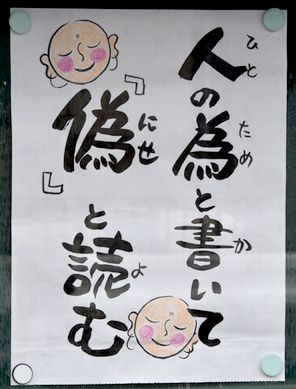 人の為と書いて
『偽』と読む
ひと ため か
にせ よ